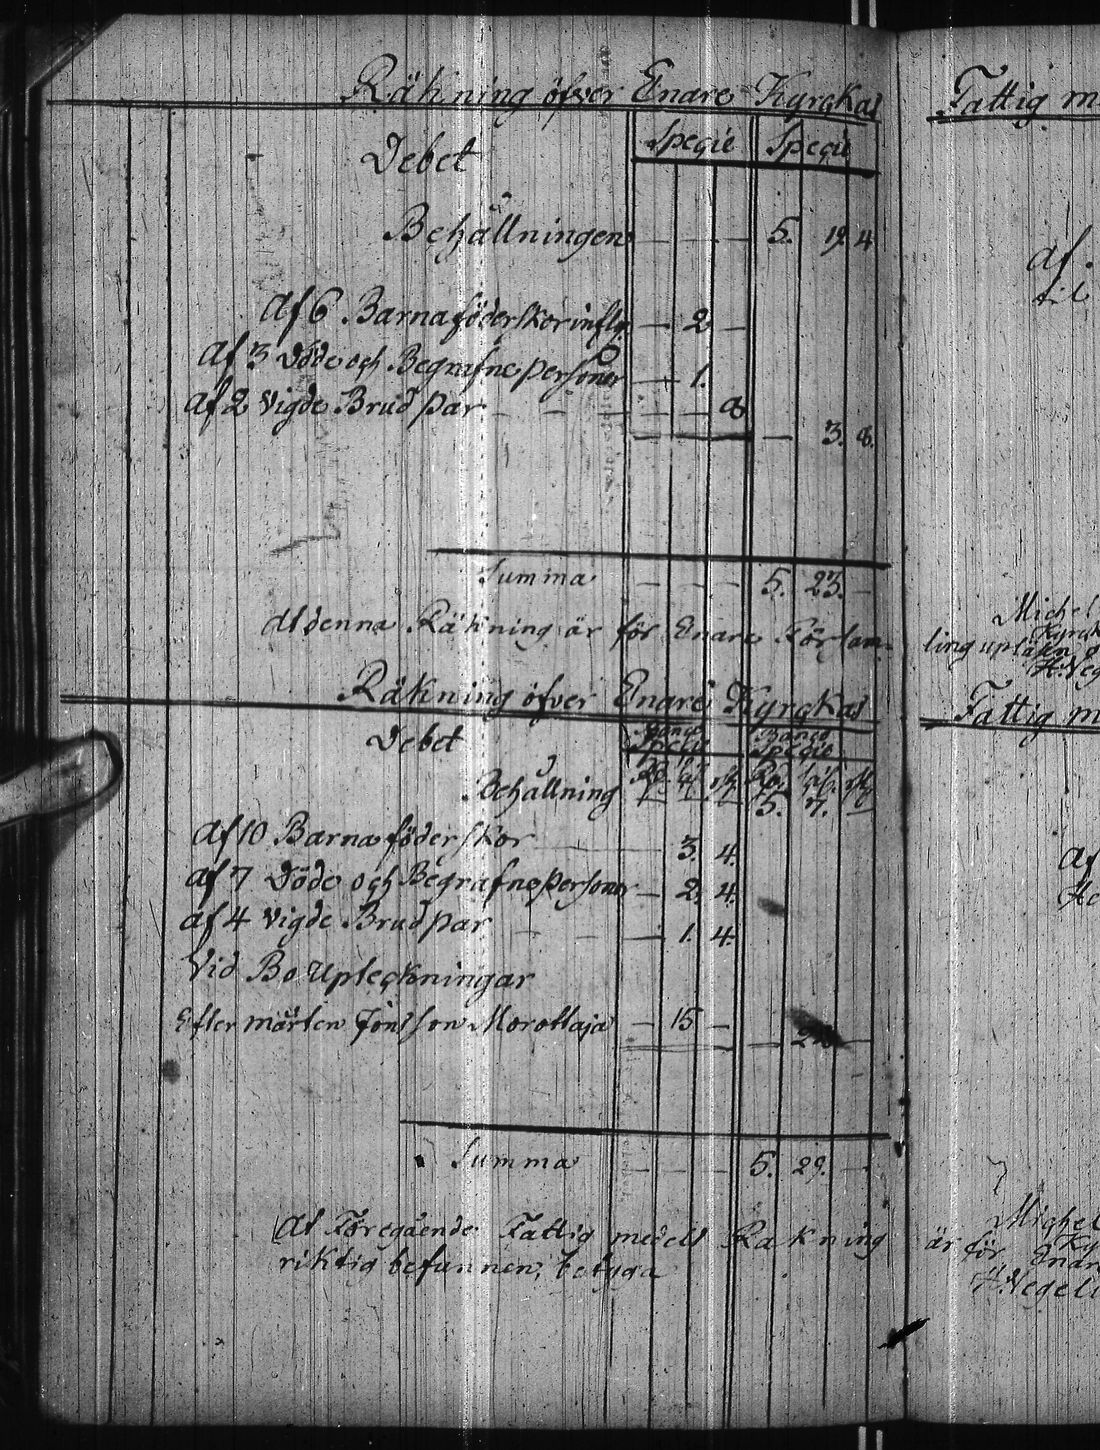 Räkning öfver Enare Kyrgkas
Debet Specie Specie
Behållningen — — — 5. 19. 4
Af 6 Barnaföderskor influ — 2 —
Af 3 Döde och Begrafne personer — 1.
Af 2 Vigde Brud par — — — — — 8
— 3. 8.
Summa — — — 5. 23. —
At denna Räkning är för Enare Församling
Räkning öfver Enare Kyrgkas
Debet Banco Specie Banco Specie
Behållning 5. 7. —
Af 10 Barnaföderskor 3. 4.
Af 7 Döde och Begrafne personer — 2. 4.
Af 4 Vigde Brud par — — — 1. 4.
Vid Bo Upteckningar
Efter Mårten Jonsson Morottaja — 15 —
Summa — — — 5. 29. —
At Föregående Fattig medels Räkning
riktig befunnen, betyga
Fattig m
af
Michel
Kyrck
ling upläsen
H: Veg
Fattig m
Af
Michel
är för Enare
H: Vegeli